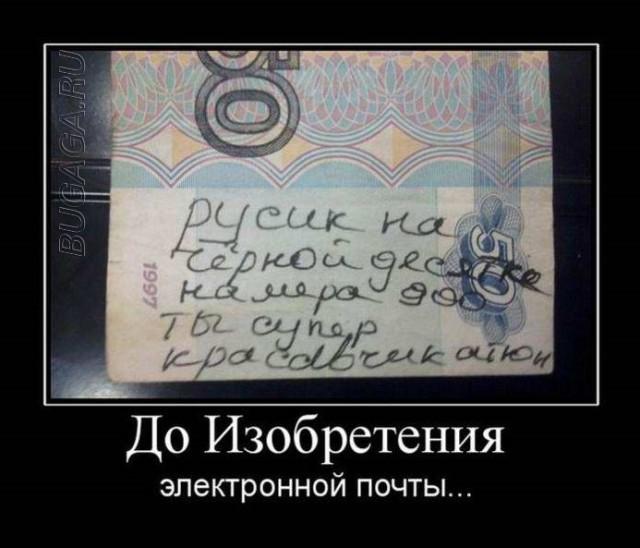 BUGAGA.RU
50
русик на
чёрной десятке
намера 900
ты супер
красавчик
1997
50
До Изобретения
электронной почты...